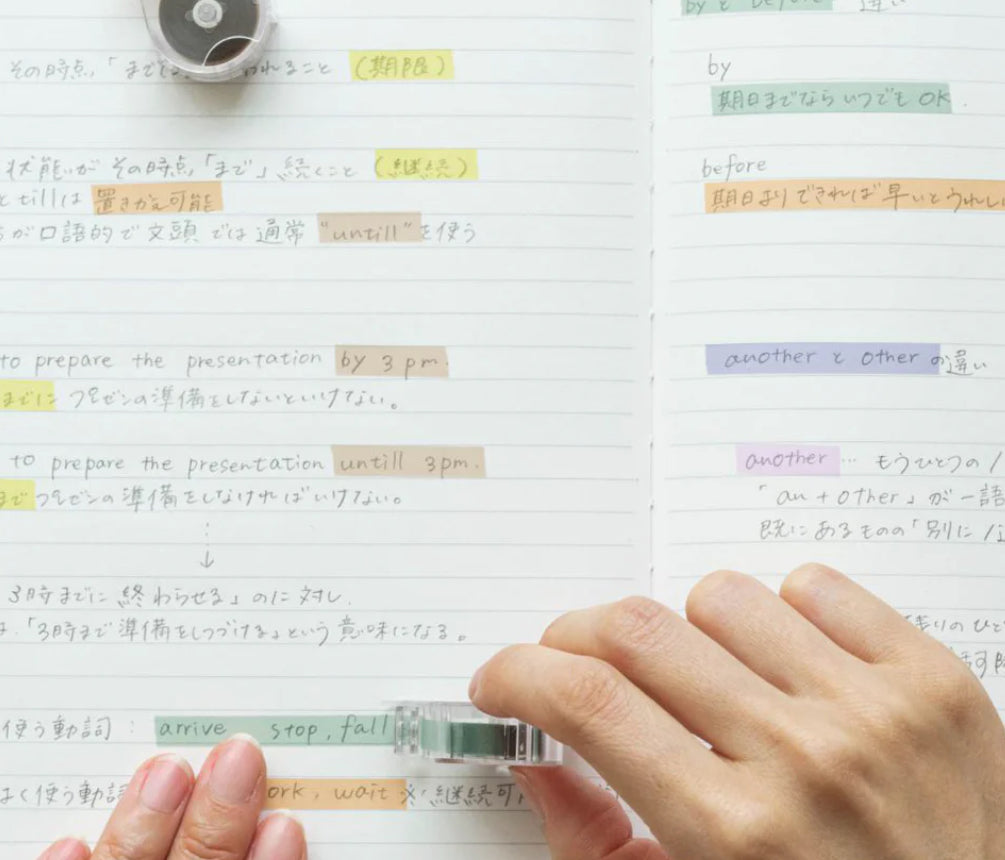 その時点,「までに われること (期限)
状態いが その時点,「まで」続くこと (継続)
と tillは 置きかえ可能
が口語的で文頭では通常 "untill"を使う
to prepare the presentation by 3 pm.
までに プレゼンの準備をしないといけない。
to prepare the presentation untill 3pm.
まで プレゼンの準備をしなければいけない。
3時までに終わらせる」のに対し,
「3時まで準備をしつづける」という意味になる。
使う動詞 : arrive stop, fall
よく使う動詞 ork, wait 継続可
by と before 違い
by
期日までならいつでも OK.
before
期日よりできれば早いとうれし
another と other の違い
another … もうひとつの
「an + other」が一語
既にあるものの「別に
残りのひと